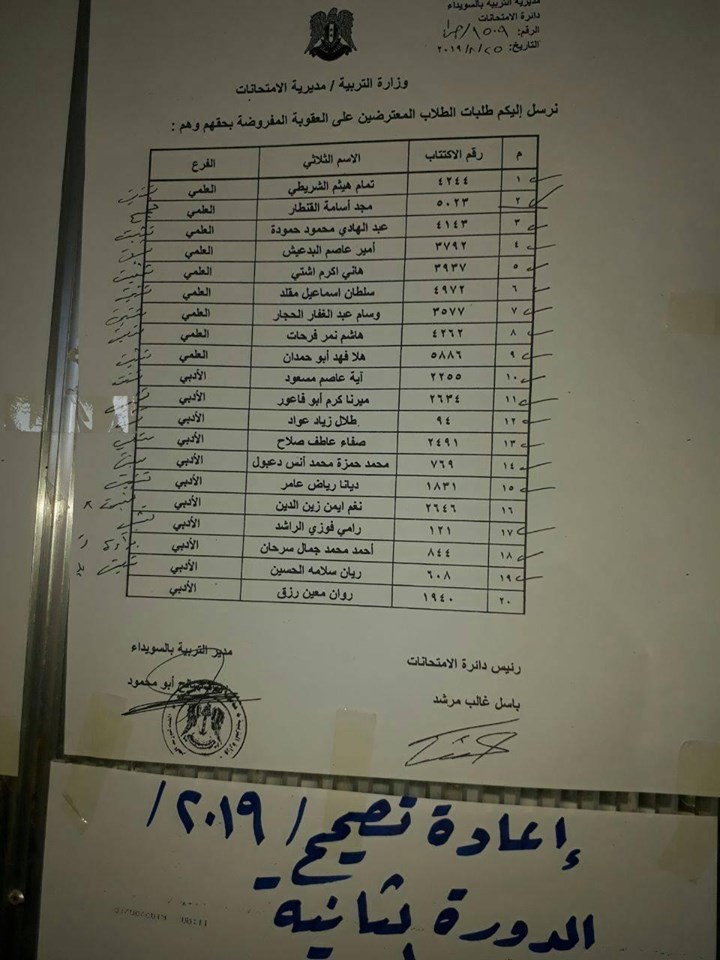 مديرية التربية بالسويداء
دائرة الامتحانات
الرقم: ١٥٠٩/
التاريخ: ٢٠١٩/٨/٢٥
وزارة التربية / مديرية الامتحانات
نرسل إليكم طلبات الطلاب المعترضين على العقوبة المفروضة بحقهم وهم :
م رقم الاكتتاب الاسم الثلاثي الفرع
١ ٤٢٤٤ تمام هيثم الشريطي العلمي
٢ ٥٠٢٣ مجد أسامة القنطار العلمي
٣ ٤١٤٣ عبد الهادي محمود حمودة العلمي
٤ ٣٧٩٢ أمير عاصم البدعيش العلمي
٥ ٣٩٣٧ هاني اكرم اشتي العلمي
٦ ٤٩٧٢ سلطان اسماعيل مقلد العلمي
٧ ٣٥٧٧ وسام عبد الغفار الحجار العلمي
٨ ٤٢٦٢ هاشم نمر فرحات العلمي
٩ ٥٨٨٦ هلا فهد أبو حمدان العلمي
١٠ ٢٢٥٥ آية عاصم مسعود الأدبي
١١ ٢٦٣٤ ميرنا كرم أبو فاعور الأدبي
١٢ ٩٤ طلال زياد عواد الأدبي
١٣ ٢٤٩١ صفاء عاطف صلاح الأدبي
١٤ ٧٦٩ محمد حمزة محمد أنس دعبول الأدبي
١٥ ١٨٣١ ديانا رياض عامر الأدبي
١٦ ٢٦٤٦ نغم ايمن زين الدين الأدبي
١٧ ١٢١ رامي فوزي الراشد الأدبي
١٨ ٨٤٤ أحمد محمد جمال سرحان الأدبي
١٩ ٦٠٨ ريان سلامه الحسين الأدبي
٢٠ ١٩٤٠ روان معين رزق الأدبي
رئيس دائرة الامتحانات
باسل غالب مرشد
مدير التربية بالسويداء
أبو محمود
إعادة تصحيح / ٢٠١٩ /
الدورة الثانية